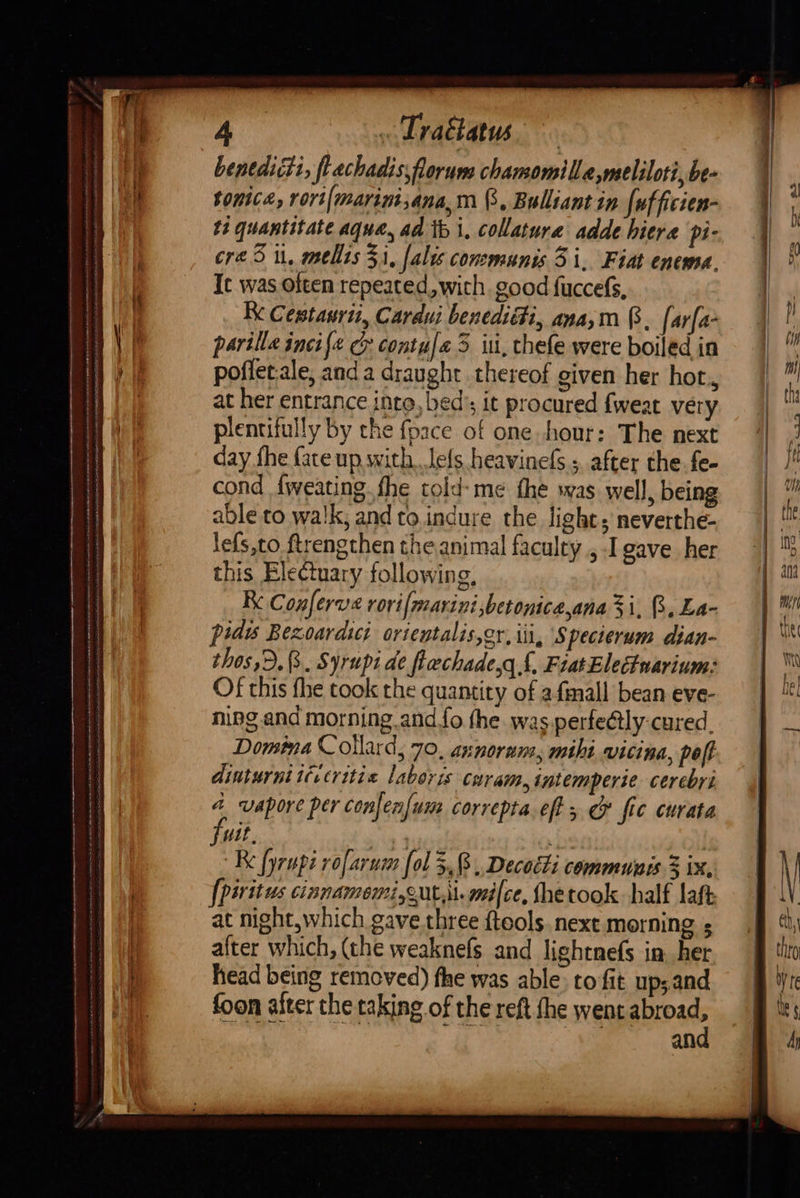 4 Tractatus
benedicti, stœchadis, florum chamomillæ, meliloti, be-
tonicæ, rorismarini, ana, m ß. Bulliant in sufficien-
ti quantitate aquæ, ad ℔ i. collaturæ adde hieræ pi-
cræ ʒ ii. mellis ℥i. salis communis ʒ i. Fiat enema.
It was often repeated, with good success.
℞ Centaurii, Cardui benedicti, ana, m ß. sarsa-
parillæ incisæ & contusæ ʒ iii, these were boiled in
posset-ale, and a draught thereof given her hot,
at her entrance into bed; it procured sweat very
plentifully by the space of one hour: The next
day she sate up with less heaviness; after the se-
cond sweating she told me she was well, being
able to walk, and to indure the light; neverthe-
less, to strengthen the animal faculty, I gave her
this Electuary following.
℞ Conservæ rorismarini, betonicæ, ana ℥i, ß. La-
pidis Bezoardici orientalis, gr. iii, Specierum dian-
thos, ℈. ß. Syrupi de stœchade, q. s. Fiat Electuarium:
Of this she took the quantity of a small bean eve-
ning and morning, and so she was perfectly cured.
Domina Collard, 70. annorum, mihi vicina, post
diuturni ictericitiæ laboris curam, intemperie cerebri
à vapore per consensum correpta est; & sic curata
fuit.
℞ syrupi rosarum sol ℥, ß. Decocti communis ℥ ix.
spiritus cinnamomi, gut. ii. misce, she took half last
at night, which gave three stools next morning;
after which, (the weakness and lightness in her
head being removed) she was able to sit up, and
soon after the taking of the rest she went abroad,
and